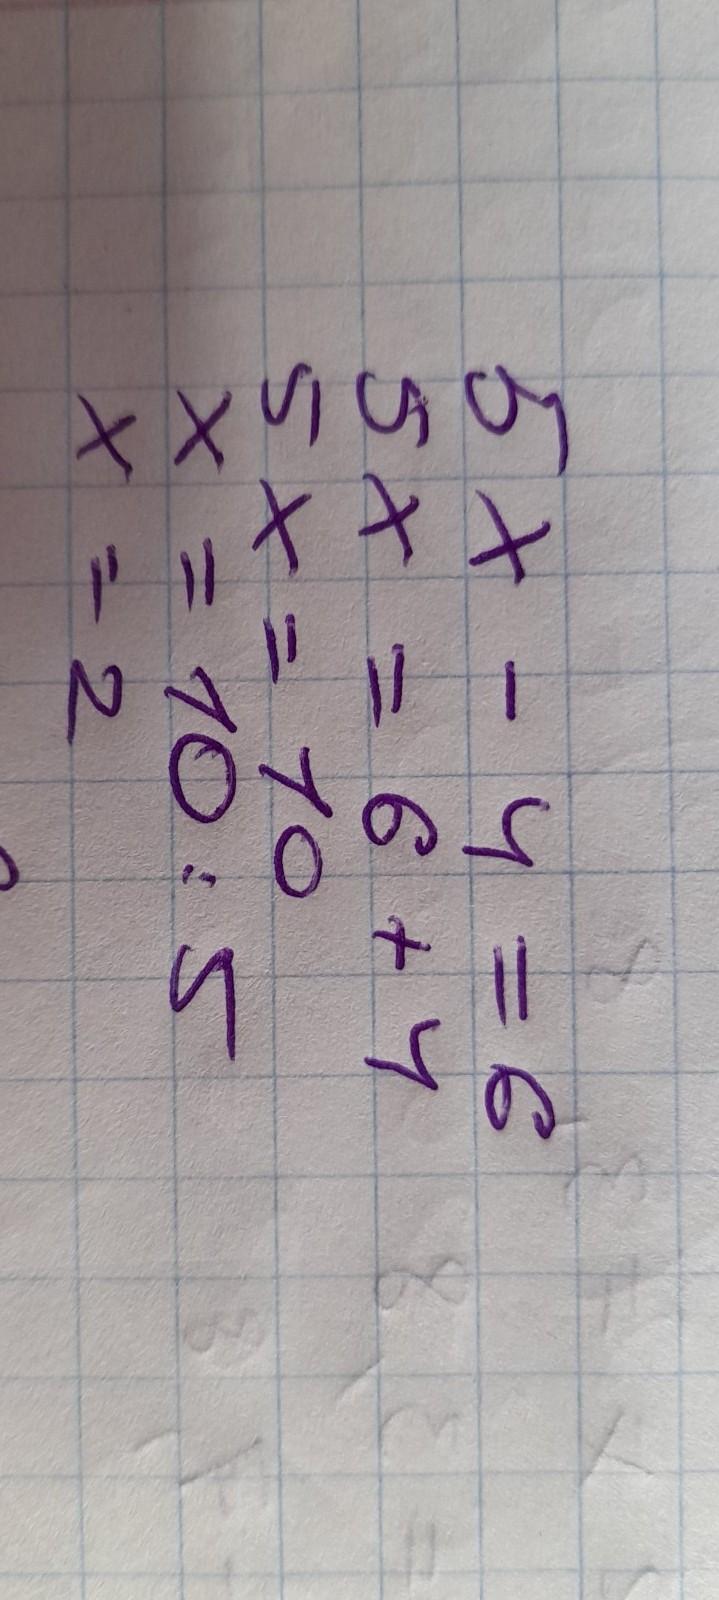 5x - 4 = 6
5x = 6 + 4
5x = 10
x = 10 : 5
x = 2